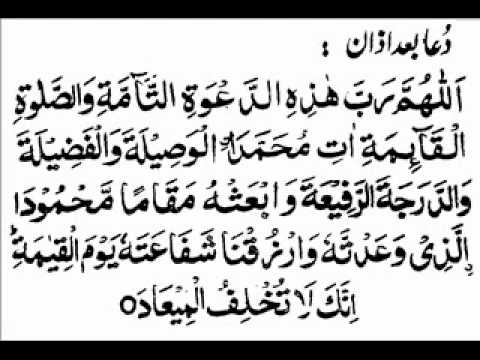 دُعا بعد اذان :
اَللّٰهُمَّ رَبَّ هٰذِهِ الدَّعْوَةِ التَّآمَّةِ وَالصَّلٰوةِ
الْقَآئِمَةِ اٰتِ مُحَمَّدَاۨ الْوَصِيْلَةَ وَالْفَضِيْلَةَ
وَالدَّرَجَةَ الرَّفِيْعَةَ وَابْعَثْهُ مَقَامًا مَّحْمُوْدَا
ۨالَّذِىْ وَعَدْتَّهٗ وَارْزُقْنَا شَفَاعَتَهٗ يَوْمَ الْقِيٰمَةِؕ
اِنَّكَ لَا تُخْلِفُ الْمِيْعَادَ ۝